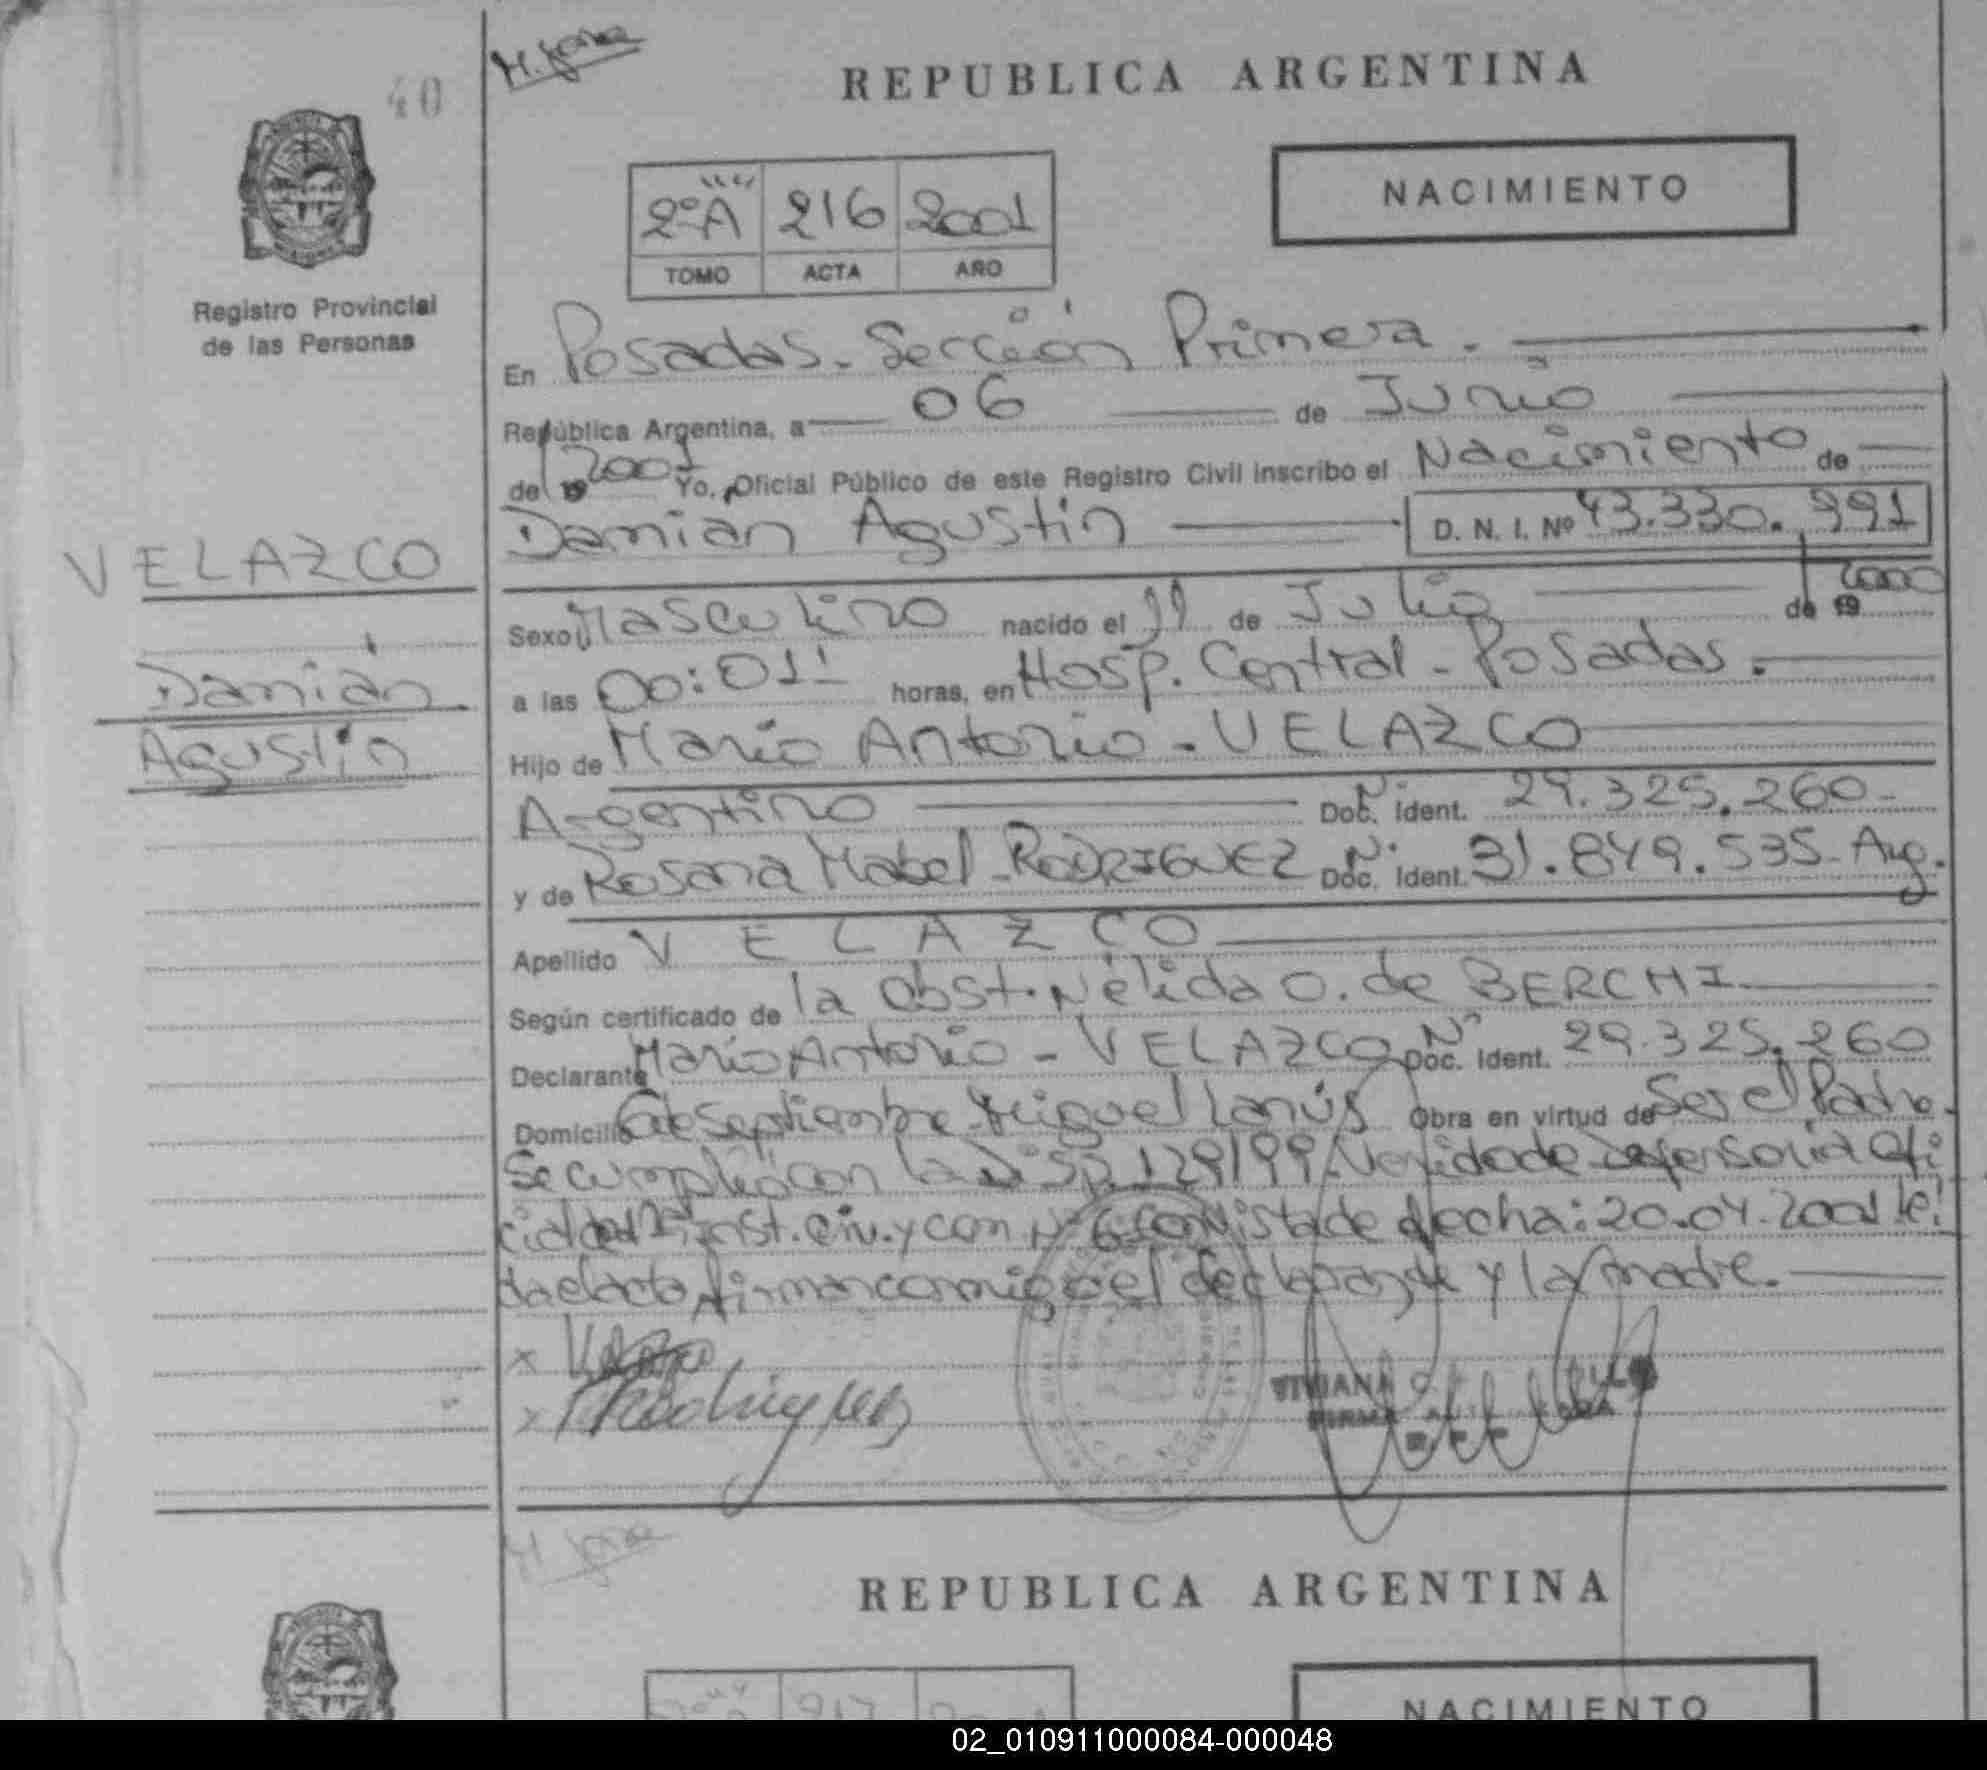 40
REPUBLICA ARGENTINA
NACIMIENTO
2º A 216 2001
TOMO ACTA AÑO
Registro Provincial
de las Personas
En Posadas - Sección Primera.
República Argentina, a 06 de Junio
de 19 2001 Yo, Oficial Público de este Registro Civil inscribo el Nacimiento de
Damian Agustin D. N. I. Nº 43.330.991
VELAZCO
Damián
Agustín
Sexo Masculino nacido el 11 de Julio de 19 2000
a las 00:01' horas, en Hosp. Central - Posadas.
Hijo de Mario Antonio - VELAZCO
Argentino Doc. Ident. Nº 29.325.260-
y de Rosana Mabel - RODRIGUEZ Doc. Ident. Nº 31.849.535- Arg.
Apellido VELAZCO
Según certificado de la Obst. Nélida O. de BERCHI
Declarante Mario Antonio - VELAZCO Doc. Ident. Nº 29.325.260
Domicilio 6 de Septiembre - Miguel Lanús Obra en virtud de Ser el Padre.
Se cumplió con la Disp. 129/99 de Defensoria Ofi
cial de 1ª Inst. Civ. y Com Nº 6 Con Vista de fecha: 20.04.2001 lei
da el acta firman conmigo el declarante y la madre.
x
x Rodriguez
VIVIANA
FIRMA
REPUBLICA ARGENTINA
217
NACIMIENTO
02_010911000084-000048